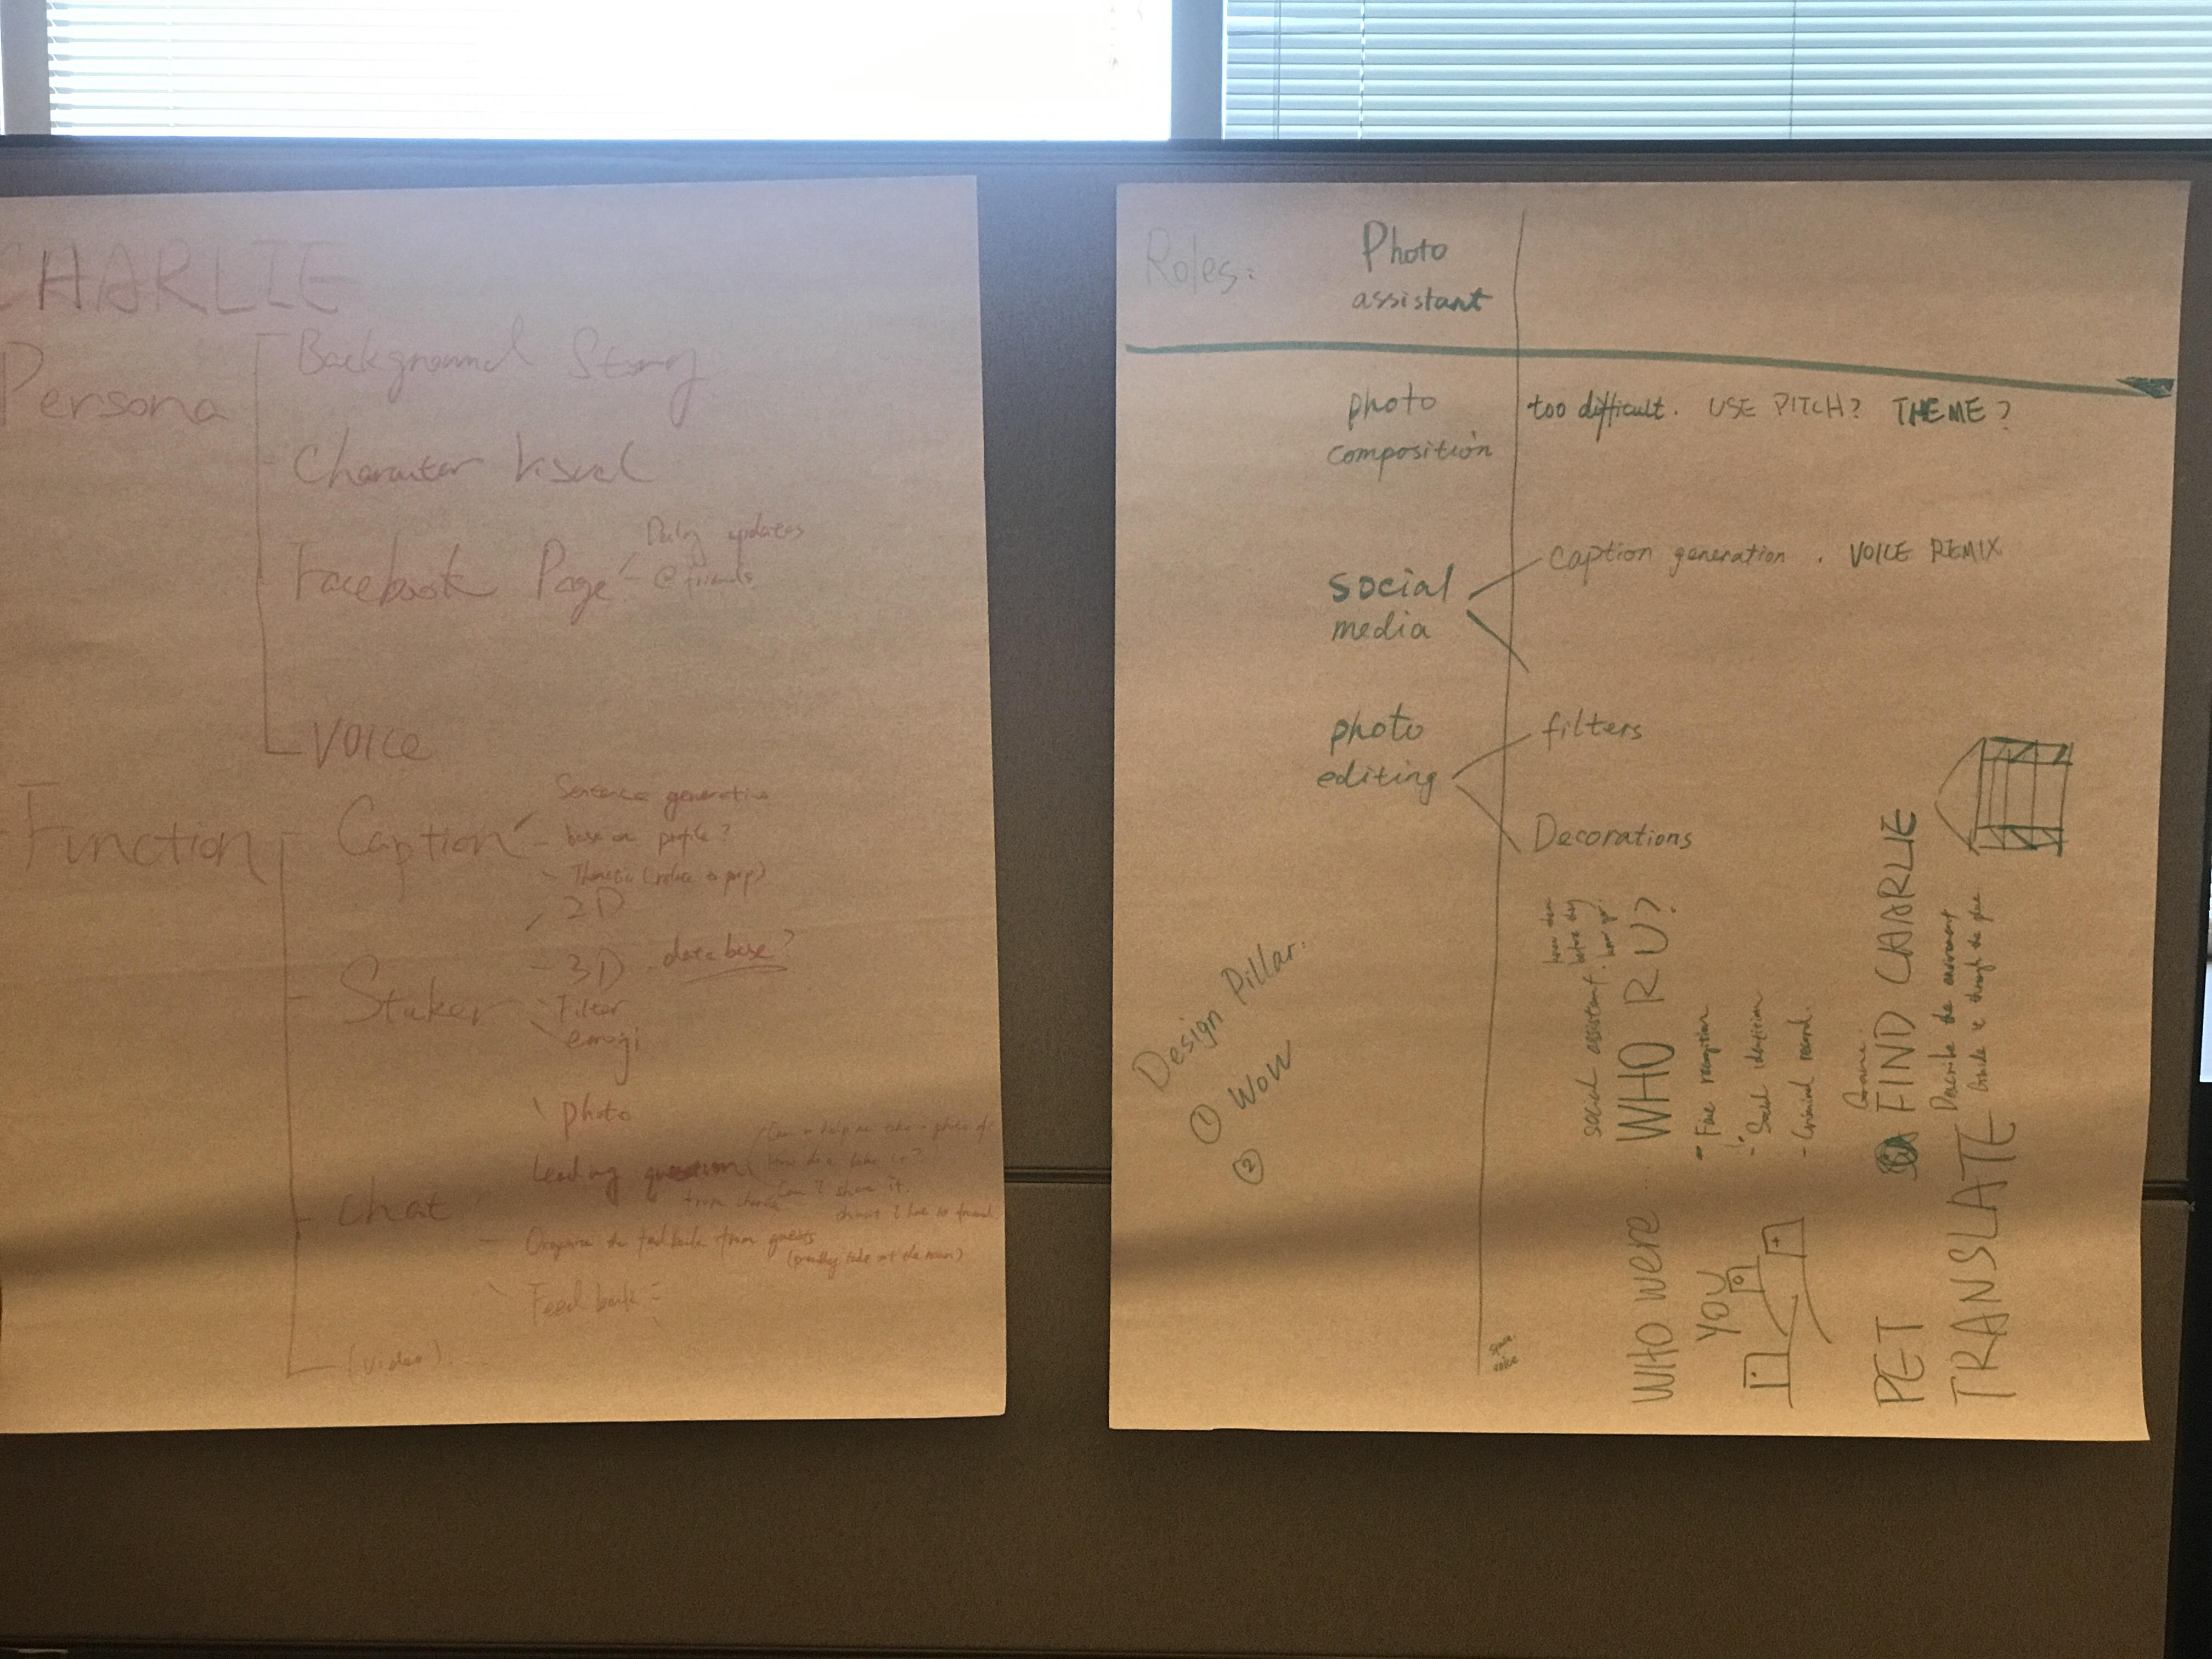 CHARLIE
Persona
Background Story
Character Visual
Facebook Page
Daily updates
@friends
VOICE
Function
Caption
Sentence generation
base on profile?
2D
3D - database?
Filter
emoji
photo
Leading question
chat
from guests
Feedback:
(video)
Roles:
Photo
assistant
photo
composition
too difficult. USE PITCH? THEME?
social
media
caption generation. VOICE REMIX
photo
editing
filters
Decorations
Design Pillar:
① Wow
②
social assistant.
before they
WHO R U?
- Face recognition
- Social
- Criminal record.
WHO were
YOU
Game:
FIND CHARLIE
Describe the environment
through the
PET
TRANSLATE